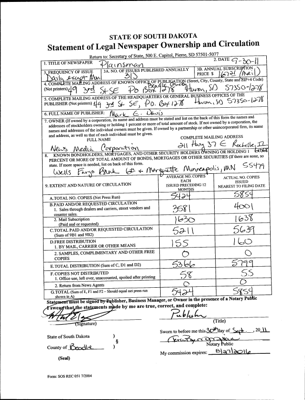 STATE OF SOUTH DAKOTA
Statement of Legal Newspaper Ownership and Circulation
Return to: Secretary of State, 500 E. Capitol, Pierre, SD 57501-5077
1. TITLE OF NEWSPAPER Plainsman
2. DATE 9-30-11
3. FREQUENCY OF ISSUE
3A. NO. OF ISSUES PUBLISHED ANNUALLY
3B. ANNUAL SUBSCRIPTION PRICE $
4. COMPLETE MAILING ADDRESS OF KNOWN OFFICE OF PUBLICATION (Street, City, County, State and ZIP+4 Code)
(Not printers) 49 3rd St SE PO Box 1278 Huron, SD 57350-1278
5. COMPLETE MAILING ADDRESS OF THE HEADQUARTERS OF GENERAL BUSINESS OFFICES OF THE
PUBLISHER (Not printer) 49 3rd St SE, P.O. Box 1278 Huron, SD 57350-1278
6. FULL NAME OF PUBLISHER: Mark E. Davis
7. OWNER (If owned by corporation, its name and address must be stated and list on the back of this form the names and
addresses of stockholders owning or holding 1 percent or more of total amount of stock. If not owned by a corporation, the
names and addresses of the individual owners must be given. If owned by a partnership or other unincorporated firm, its name
and address, as well as that of each individual must be given.)
FULL NAME
COMPLETE MAILING ADDRESS
News Media Corporation 211 Hwy 37 E Rochelle, IL
8. KNOWN BONDHOLDERS, MORTGAGES, AND OTHER SECURITY HOLDERS OWNING OR HOLDING 1
PERCENT OR MORE OF TOTAL AMOUNT OF BONDS, MORTGAGES OR OTHER SECURITIES (If there are none, so
state. If more space is needed, list on back of this form)
Wells Fargo Bank 6th & Marquette Minneapolis, MN 55479
9. EXTENT AND NATURE OF CIRCULATION
AVERAGE NO. COPIES EACH ISSUED PRECEDING 12 MONTHS
ACTUAL NO. COPIES ISSUED NEAREST TO FILING DATE
A. TOTAL NO. COPIES (Net Press Run) 5424 5854
B. PAID AND/OR REQUESTED CIRCULATION
1. Sales through dealers and carriers, street vendors and counter sales 3581 4001
2. Mail Subscription (Paid and or requested) 1630 1638
C. TOTAL PAID AND/OR REQUESTED CIRCULATION (Sum of 9B1 and 9B2) 5211 5639
D. FREE DISTRIBUTION
1. BY MAIL, CARRIER OR OTHER MEANS 155 160
2. SAMPLES, COMPLIMENTARY AND OTHER FREE COPIES 0 0
E. TOTAL DISTRIBUTION (Sum of C, D1 and D2) 5366 5799
F. COPIES NOT DISTRIBUTED
1. Office use, left over, unaccounted, spoiled after printing 58 55
2. Return from News Agents 0 0
G. TOTAL (Sum of E, F1 and F2 - Should equal net press run shown in A) 5424 5854
Statement must be signed by Publisher, Business Manager, or Owner in the presence of a Notary Public
I swear that the statements made by me are true, correct, and complete:
Publisher
(Signature) (Title)
State of South Dakota )
Sworn to before me this 30th day of Sept, 2011
County of Beadle )
Notary Public
(Seal) My commission expires:
Form: SOS REC 051 7/2004